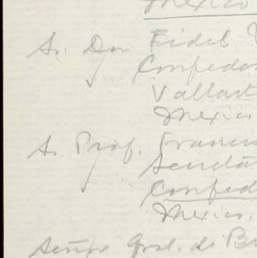 Mexico
Sr. Don Fidel
Confeder
Vallart
Mexico
Sr. Prof. Francis
Secretá
Confed
Mexico.
Señor Gral. de Br